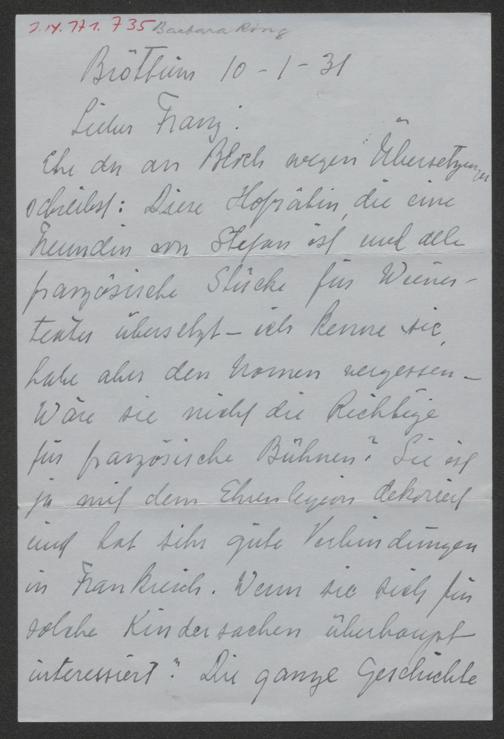 2.IX.171.735 Barbara Ring
Bröttum 10-1-31
Lieber Franz!
Ehe du an Bloch wegen Übersetzungen
schreibst: Diese Hofrätin, die eine
Freundin von Stefan ist und alle
französische Stücke für Wiener-
teater übersetzt – ich kenne sie,
habe aber den Namen vergessen –
Wäre sie nicht die Richtige
für französische Bühnen? Sie ist
ja mit dem Ehrenlegion dekoriert
und hat sehr gute Verbindungen
in Frankreich. Wenn sie sich für
solche Kindersachen überhaupt
interessiert? Die ganze Geschichte